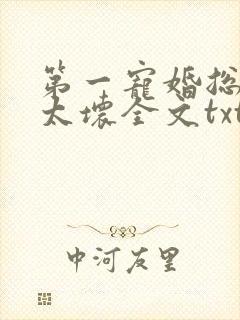 第一寵婚總
太壞全文txt
中河友里